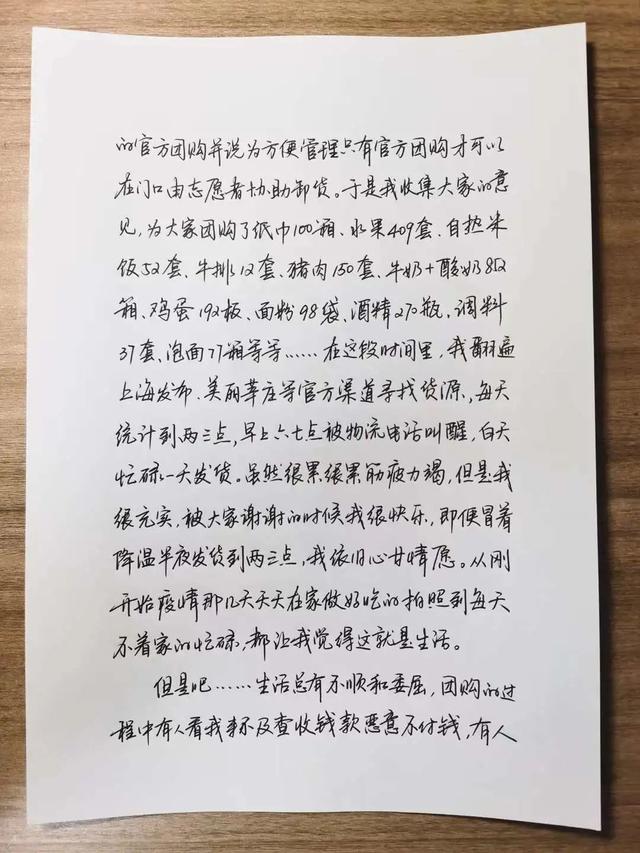 的官方团购并说为方便管理只有官方团购才可以
在门口由志愿者协助卸货。于是我收集大家的意
见,为大家团购了纸巾100箱、水果409套、自热米
饭52套、牛排12套、猪肉150套、牛奶+酸奶852
箱、鸡蛋192板、面粉98袋、酒精270瓶、调料
37套、泡面77箱等等……在这段时间里,我翻遍
上海发布、美丽莘庄等官方渠道寻找货源,每天
统计到两三点,早上六七点被物流电话叫醒,白天
忙碌一天发货。虽然很累很累筋疲力竭,但是我
很充实,被大家谢谢的时候我很快乐,即便冒着
降温半夜发货到两三点,我依旧心甘情愿。从刚
开始疫情那几天天天在家做好吃的拍照到每天
不着家的忙碌,都让我觉得这就是生活。
但是吧……生活总有不顺和委屈,团购的过
程中有人看我来不及查收钱款恶意不付钱,有人